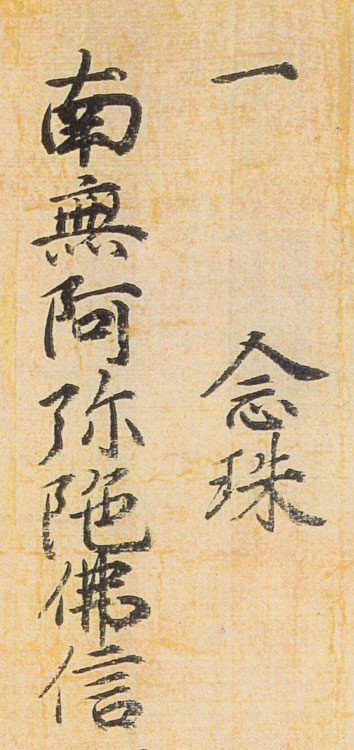 一 念珠
南無阿弥陁佛信